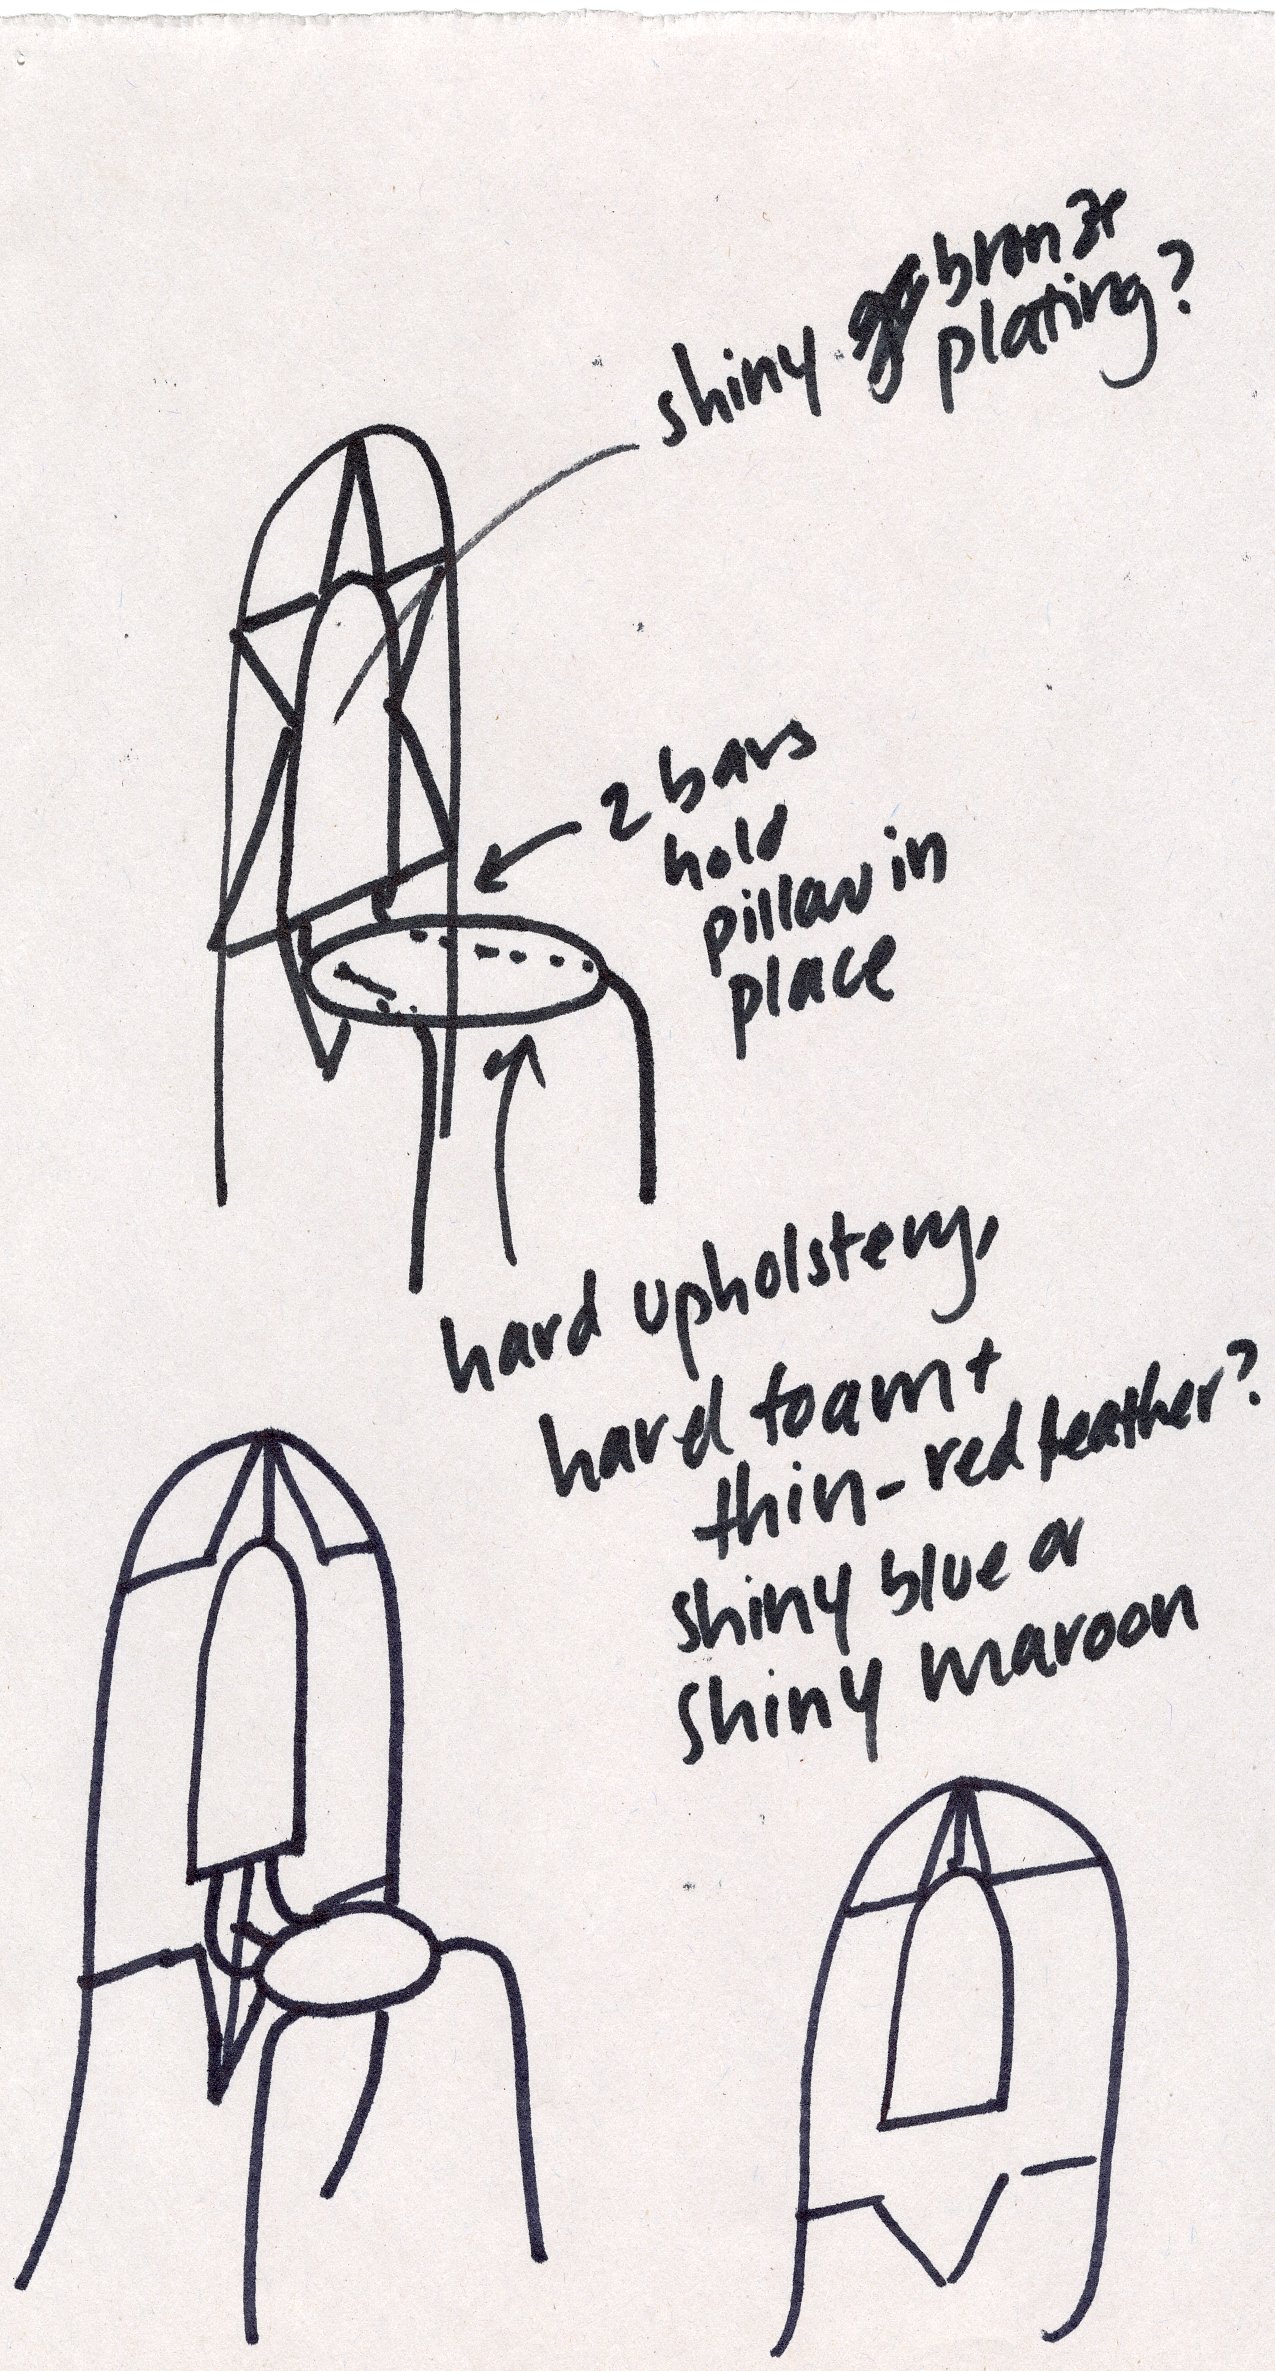 shiny bronze
plating?
2 bars
hold
pillow in
place
hard upholstery,
hard foam +
thin-red leather?
shiny blue or
shiny maroon